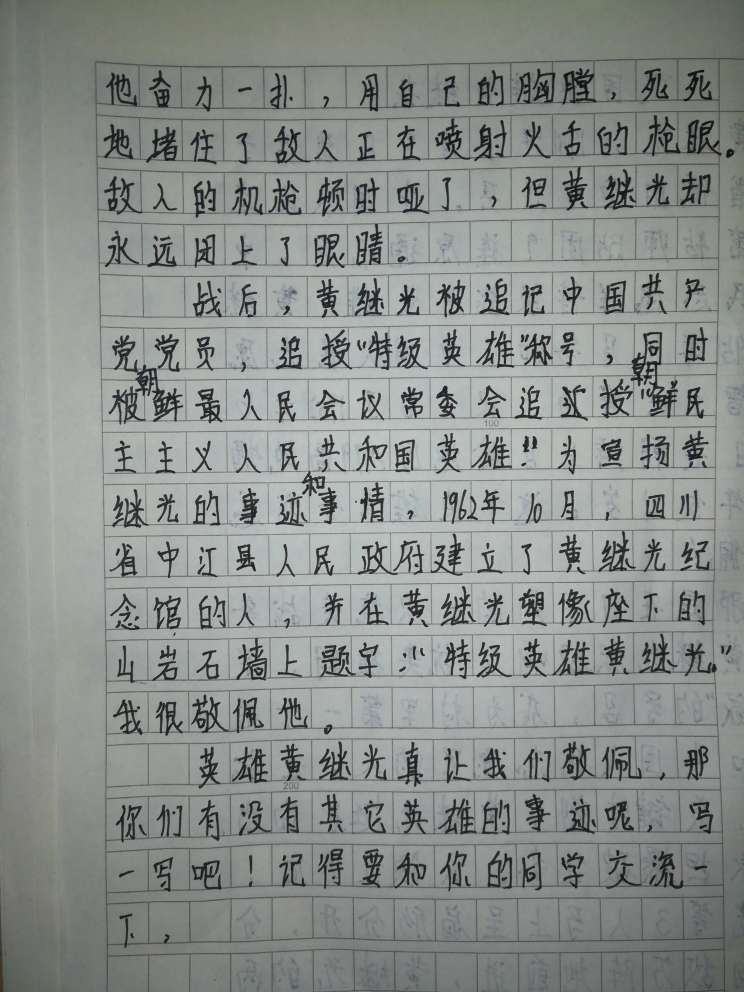 他奋力一扑，用自己的胸膛，死死
地堵住了敌人正在喷射火舌的枪眼。
敌人的机枪顿时哑了，但黄继光却
永远闭上了眼睛。
战后，黄继光被追记中国共产
党党员，追授“特级英雄”称号，同时
被朝鲜最人民会议常委会追授“朝鲜民
主主义人民共和国英雄”。为宣扬黄
继光的事迹和事情，1962年10月，四川
省中江县人民政府建立了黄继光纪
念馆的人，并在黄继光塑像座下的
山岩石墙上题字：“特级英雄黄继光。”
我很敬佩他。
英雄黄继光真让我们敬佩，那
你们有没有其它英雄的事迹呢，写
一写吧！记得要和你的同学交流一
下，
100
200